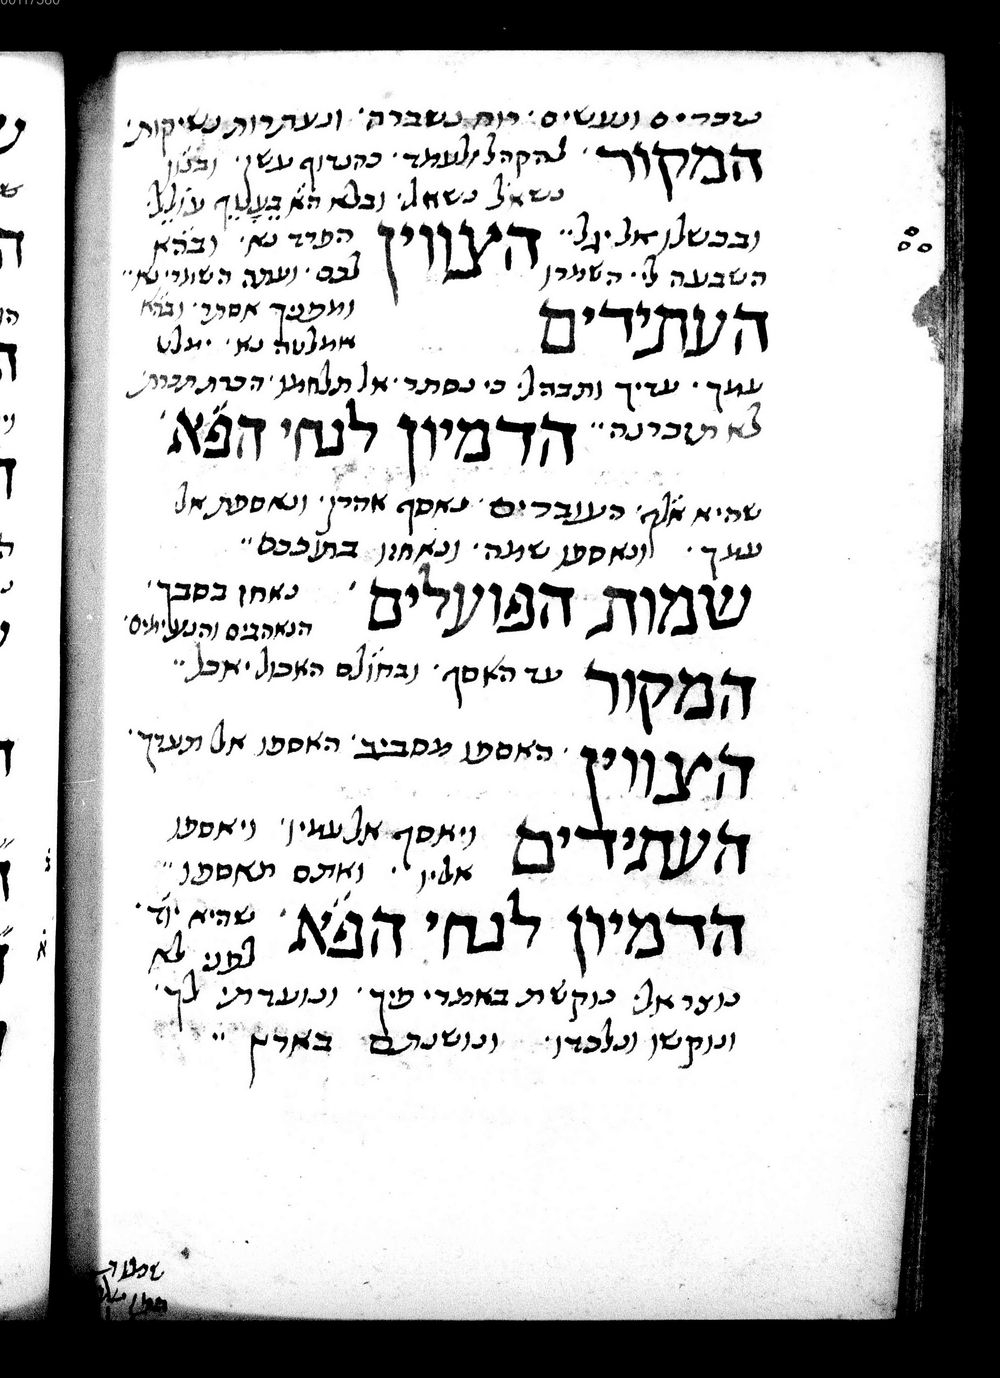 נשברים ונעשים׳ רוח נשברה׳ ונעתרות נשיקות׳
המקור׳ להקהל ולעמד׳ כהנדוף עשן׳ ובנון
נשאל נשאל׳ ובלא הא בעליך עולל׳
ובכשלו אל יגל׳׳ הצווין הפרד נא׳ ובהא
השבעה לי׳ השמרו לכם׳ ועתה השמרי נא׳׳
העתידים ומפניך אסתר׳ ובהא
אמלטה נא׳ ימלט
עמך׳ עדיך ותבהל׳ כי נסתר׳ אל תלחמו׳ הכרת תכרת׳
לא תזכרנה׳׳ הדמיון לנחי הפ״א׳
שהיא אלף׳ העוברים׳ נאסף אהרן׳ ונאספת אל
עמך׳ ונאספו שמה׳ ונאחזו בתוככם׳׳
שמות הפועלים׳ נאחז בסבך׳
הנאהבים והנעימים׳
המקור עד האסף׳ ובחולם האכול יאכל׳׳
הצווין׳ האספו מסביב׳ האספו אל תערך׳
העתידים ויאסף אל עמיו׳ ויאספו
אליו׳ ואתם תאספו׳׳
הדמיון לנחי הפ״א׳ שהיא יוד׳
לפני לא
נוצר אל׳ נוקשת באמרי פיך׳ ונועדתי לך׳
ונוקשו ונלכדו׳ ונושנתם בארץ׳׳